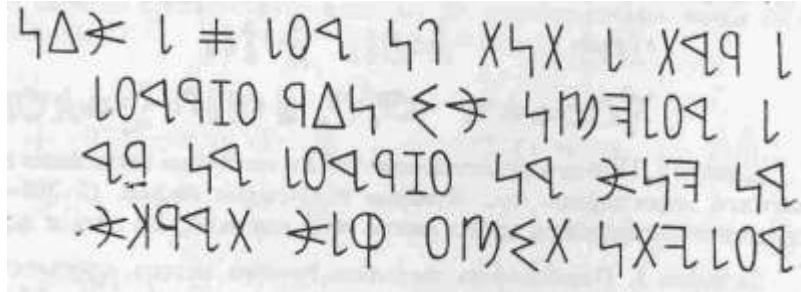 𐤋 𐤓𐤁𐤕 𐤋 𐤕𐤍𐤕 𐤐𐤍 𐤁𐤏𐤋 𐤅 𐤋 𐤀𐤃𐤍
𐤋 𐤁𐤏𐤋𐤇𐤌𐤍 𐤀𐤔 𐤍𐤃𐤓 𐤏𐤆𐤓𐤁𐤏𐤋
𐤁𐤍 𐤇𐤍𐤀 𐤁𐤍 𐤏𐤆𐤓𐤁𐤏𐤋 𐤁𐤍
𐤁𐤏𐤋𐤉𐤕𐤍 𐤕𐤔𐤌𐤏 𐤒𐤋𐤀 𐤕𐤁𐤓𐤊𐤀